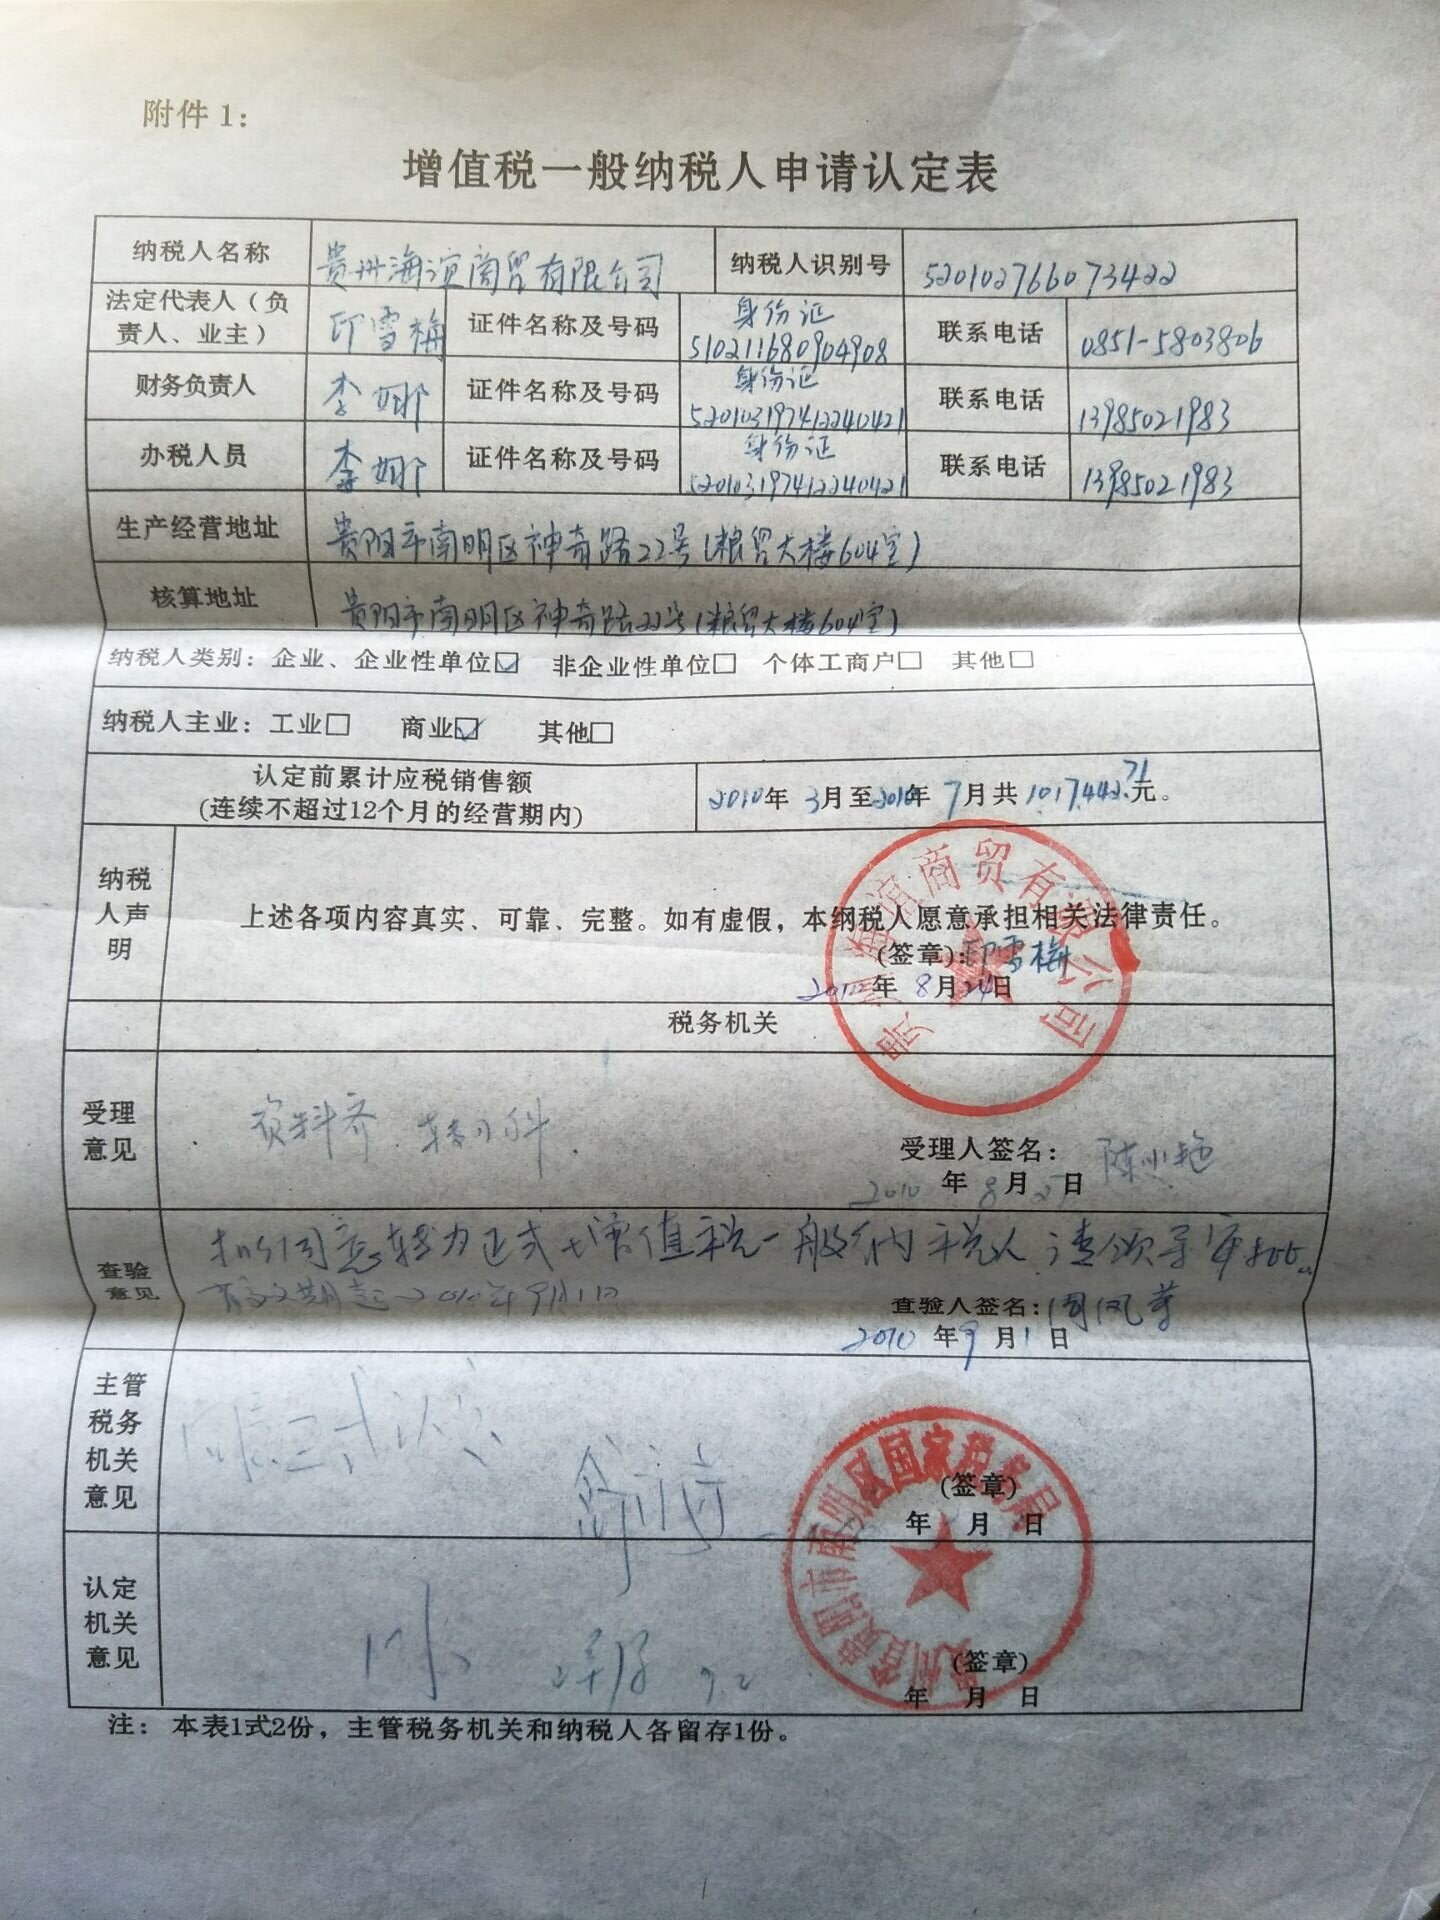 附件 1：
增值税一般纳税人申请认定表
纳税人名称 贵州海谊商贸有限公司 纳税人识别号 520102766073422
法定代表人（负责人、业主） 印雪梅 证件名称及号码 身份证 510211680904908 联系电话 0851-5803806
财务负责人 李娜 证件名称及号码 身份证 520103197412240421 联系电话 13985021983
办税人员 李娜 证件名称及号码 身份证 520103197412240421 联系电话 13985021983
生产经营地址 贵阳市南明区神奇路22号(粮贸大楼604室)
核算地址 贵阳市南明区神奇路22号(粮贸大楼604室)
纳税人类别：企业、企业性单位☑ 非企业性单位□ 个体工商户□ 其他□
纳税人主业：工业□ 商业☑ 其他□
认定前累计应税销售额
(连续不超过12个月的经营期内) 2010年 3月至2010年 7月共 1017442.71元。
纳税人声明
上述各项内容真实、可靠、完整。如有虚假，本纳税人愿意承担相关法律责任。
(签章)：印雪梅
2010年 8月24日
贵州海谊商贸有限公司
税务机关
受理意见
资料齐
受理人签名：
2010 年 8月 日
查验意见
同意转为正式增值税一般纳税人 请领导审批。
有效期起 2010年9月1日
查验人签名：
2010 年9月1日
主管税务机关意见
(签章)
年 月 日
贵州省贵阳市南明区国家税务局
认定机关意见
9.2
(签章)
年 月 日
注： 本表1式2份，主管税务机关和纳税人各留存1份。